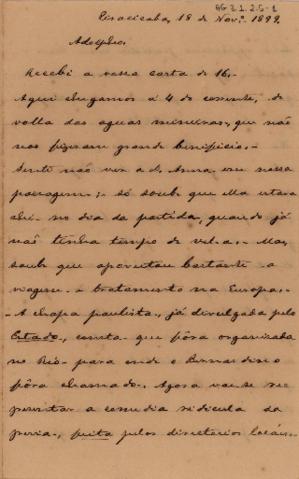 AG 2.1.2.5-1
Piracicaba, 18 de Novº. 1899.
Adolpho.
Recebi a vossa carta de 16.-
Aqui chegamos a 4 do corrente, de
volta das aguas mineiras, que não
nos fizeram grande beneficio.-
Senti não ver a d. Anna em nossa
passagem; - só soube que ella estava
ahi no dia da partida, quando já
não tinha tempo de vel-a. - Mas,
soube que aproveitou bastante a
viagem e tratamento na Europa.-
- A chapa paulista, já divulgada pelo
Estado, consta que fôra organizada
no Rio - para onde o Bernardino
fôra chamado. Agora vae se re
presentar a comedia ridicula da
previa, feita pelos directorios locaes.-